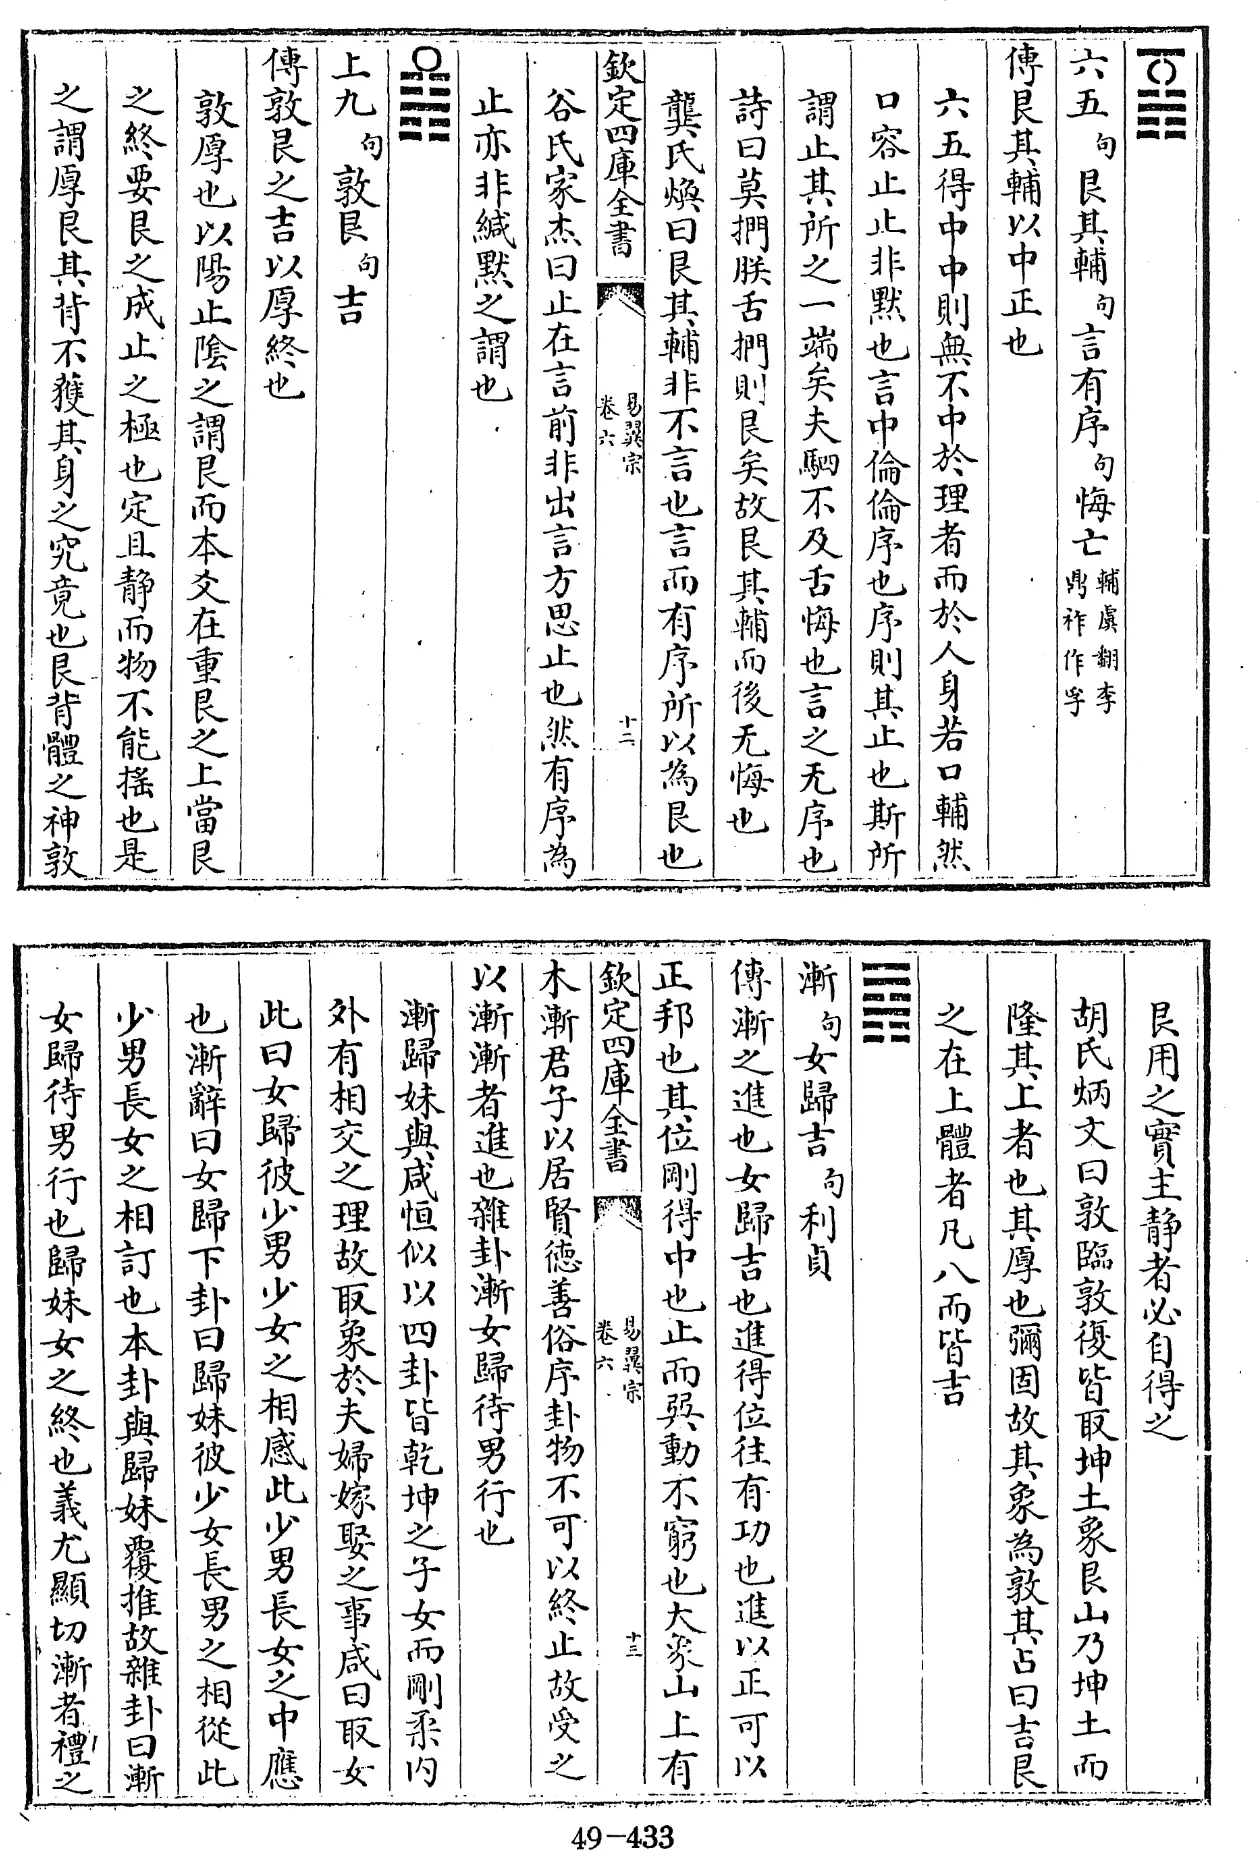 六五句艮其輔句言有序句悔亡輔虞翻李鼎祚作孚
傳艮其輔以中正也
六五得中中則無不中於理者而於人身若口輔然
口容止止非默也言中倫倫序也序則其止也斯所
謂止其所之一端矣夫駟不及舌悔也言之无序也
詩曰莫捫朕舌捫則艮矣故艮其輔而後无悔也
龔氏煥曰艮其輔非不言也言而有序所以為艮也
欽定四庫全書
易翼宗
卷六
十二
谷氏家杰曰止在言前非出言方思止也然有序為
止亦非緘默之謂也
上九句敦艮句吉
傳敦艮之吉以厚終也
敦厚也以陽止陰之謂艮而本爻在重艮之上當艮
之終要艮之成止之極也定且靜而物不能搖也是
之謂厚艮其背不獲其身之究竟也艮背體之神敦
艮用之實主靜者必自得之
胡氏炳文曰敦臨敦復皆取坤土象艮山乃坤土而
隆其上者也其厚也彌固故其象為敦其占曰吉艮
之在上體者凡八而皆吉
漸句女歸吉句利貞
傳漸之進也女歸吉也進得位往有功也進以正可以
正邦也其位剛得中也止而巽動不窮也大象山上有
欽定四庫全書
易翼宗
卷六
十三
木漸君子以居賢德善俗序卦物不可以終止故受之
以漸漸者進也雜卦漸女歸待男行也
漸歸妹與咸恒似以四卦皆乾坤之子女而剛柔內
外有相交之理故取象於夫婦嫁娶之事咸曰取女
此曰女歸彼少男少女之相感此少男長女之中應
也漸辭曰女歸下卦曰歸妹彼少女長男之相從此
少男長女之相訂也本卦與歸妹覆推故雜卦曰漸
女歸待男行也歸妹女之終也義尤顯切漸者禮之
49-433